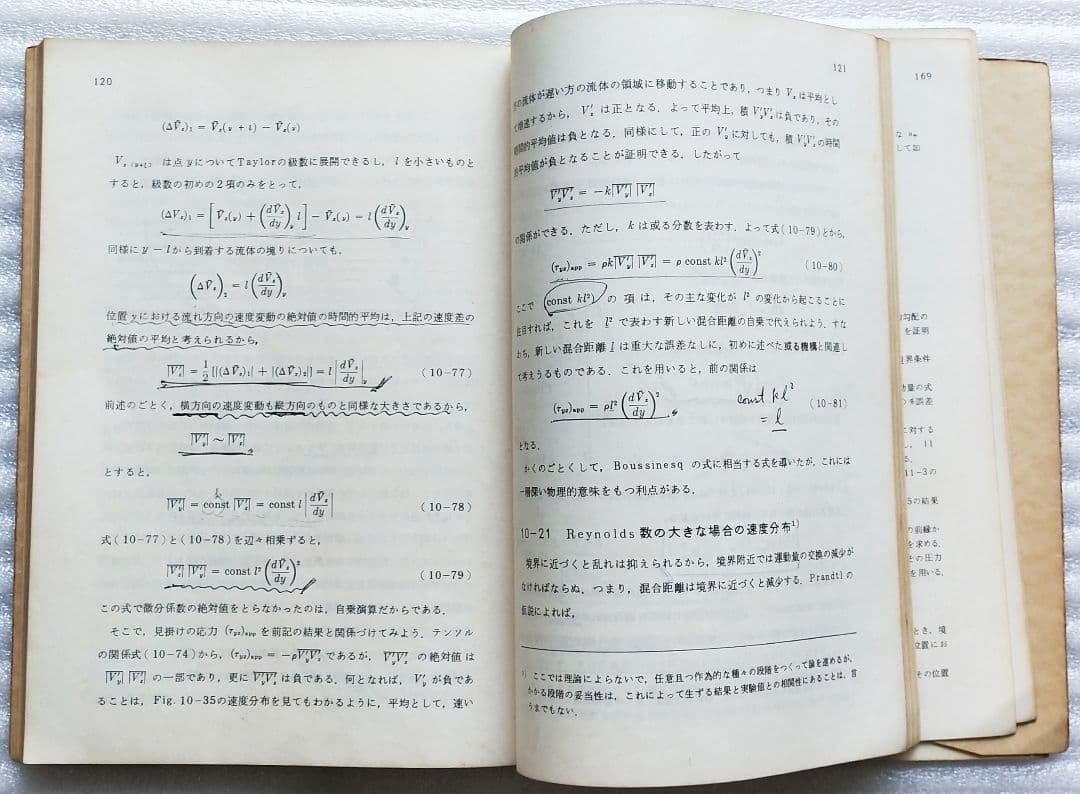 120
(ΔV̄ₓ)₁ = V̄ₓ(y + l) − V̄ₓ(y)
Vₓ(y+l) は点 y についてTaylorの級数に展開できるし, l を小さいものと
すると, 級数の初めの2項のみをとって,
(ΔVₓ)₁ = [V̄ₓ(y) + (dV̄ₓ/dy)_y l] − V̄ₓ(y) = l (dV̄ₓ/dy)_y
同様に y − l から到着する流体の塊りについても,
(ΔV̄ₓ)₂ = l (dV̄ₓ/dy)_y
位置 y における流れ方向の速度変動の絶対値の時間的平均は, 上記の速度差の
絶対値の平均と考えられるから,
|V̄′ₓ| = 1/2 [|(ΔV̄ₓ)₁| + |(ΔV̄ₓ)₂|] = l |dV̄ₓ/dy|_y (10-77)
前述のごとく, 横方向の速度変動も縦方向のものと同様な大きさであるから,
|V′ₓ| ~ |V′_y|
とすると,
k
|V′_y| = const |V′ₓ| = const l |dV̄ₓ/dy| (10-78)
式(10-77)と(10-78)を辺々相乗ずると,
|V′ₓ| |V′_y| = const l² (dV̄ₓ/dy)² (10-79)
この式で微分係数の絶対値をとらなかったのは, 自乗演算だからである.
そこで, 見掛けの応力 (τ_yx)_app を前記の結果と関係づけてみよう. テンソル
の関係式(10-74)から, (τ_yx)_app = −ρV′_yV′ₓ であるが, V′_yV′ₓ の絶対値は
|V′_y| |V′ₓ| の一部であり, 更に V′_yV′ₓ は負である. 何となれば, V′_y が負であ
ることは, Fig. 10-35の速度分布を見てもわかるように, 平均として, 速い
121
の流体が遅い方の流体の領域に移動することであり, つまり Vₓ は平均とし
て増速するから, V′ₓ は正となる. よって平均上, 積 V′_yV′ₓ は負であり, その
時間的平均値は負となる. 同様にして, 正の V′_y に対しても, 積 V′_yV′ₓ の時間
的平均値が負となることが証明できる. したがって
V′_yV′ₓ = −k|V′_y| |V′ₓ|
の関係ができる. ただし, k は或る分数を表わす. よって式(10-79)とから,
(τ_yx)_app = ρk|V′_y| |V′ₓ| = ρ const kl² (dV̄ₓ/dy)² (10-80)
ここで (const kl²) の項は, その主な変化が l² の変化から起こることに
注目すれば, これを l² で表わす新しい混合距離の自乗で代えられよう. すな
わち, 新しい混合距離 l は重大な誤差なしに, 初めに述べた或る機構と関連し
て考えうるものである. これを用いると, 前の関係は
(τ_yx)_app = ρl² (dV̄ₓ/dy)² (10-81)
const kl²
= l
となる.
かくのごとくして, Boussinesq の式に相当する式を導いたが, これには
一層深い物理的意味をもつ利点がある.
10-21 Reynolds 数の大きな場合の速度分布¹⁾
境界に近づくと乱れは抑えられるから, 境界附近では運動量の交換の減少が
なければならぬ. つまり, 混合距離は境界に近づくと減少する. Prandtlの
仮説によれば,
¹⁾ ここでは理論によらないで, 任意且つ作為的な種々の段階をつくって論を進めるが,
かかる段階の妥当性は, これによって生ずる結果と実験値との相関性にあることは, 言
うまでもない.
169
して如
勾配の
を証明
境界条件
量の式
の多誤差
に対する
し, 11
る.
11-3の
5の結果
の前縁か
を求める.
その圧力
を用いる.
とき, 境
位置にお
その位置